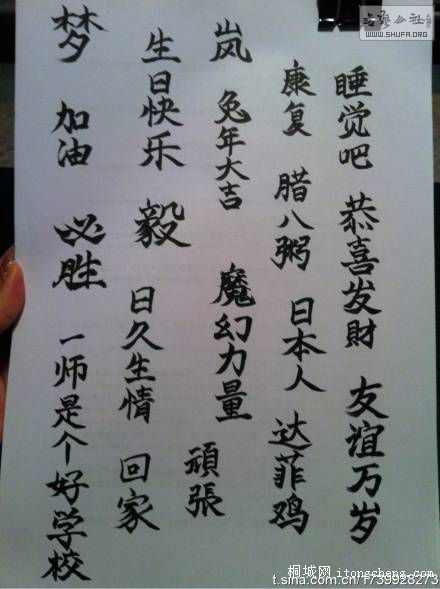 睡觉吧 恭喜发财 友谊万岁
康复 腊八粥 日本人 达菲鸡
岚 兔年大吉 魔幻力量 頑張
生日快乐 毅 日久生情 回家
梦 加油 必胜 一师是个好学校
书艺公社
WWW.SHUFA.ORG
桐城网 itongcheng.com
t.sina.com.cn/1739928273